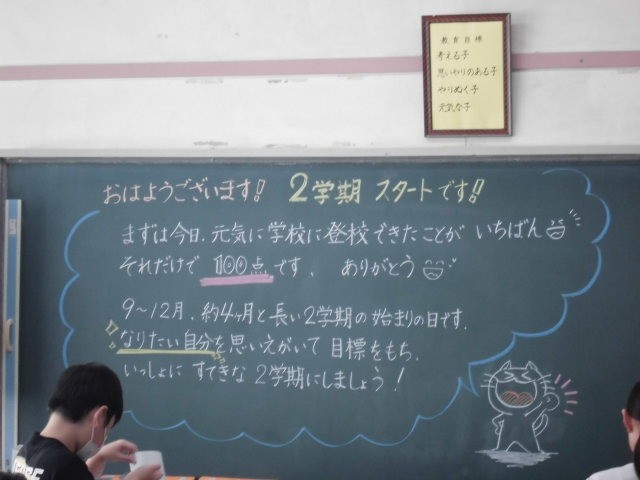 教育目標
考える子
思いやりのある子
やりぬく子
元気な子
おはようございます! 2学期 スタートです!!
まずは今日、元気に学校に登校できたことが いちばん
それだけで 100点です、 ありがとう
9〜12月、約4ヶ月と長い2学期の始まりの日です。
なりたい自分を思いえがいて 目標をもち、
いっしょに すてきな 2学期にしましょう!